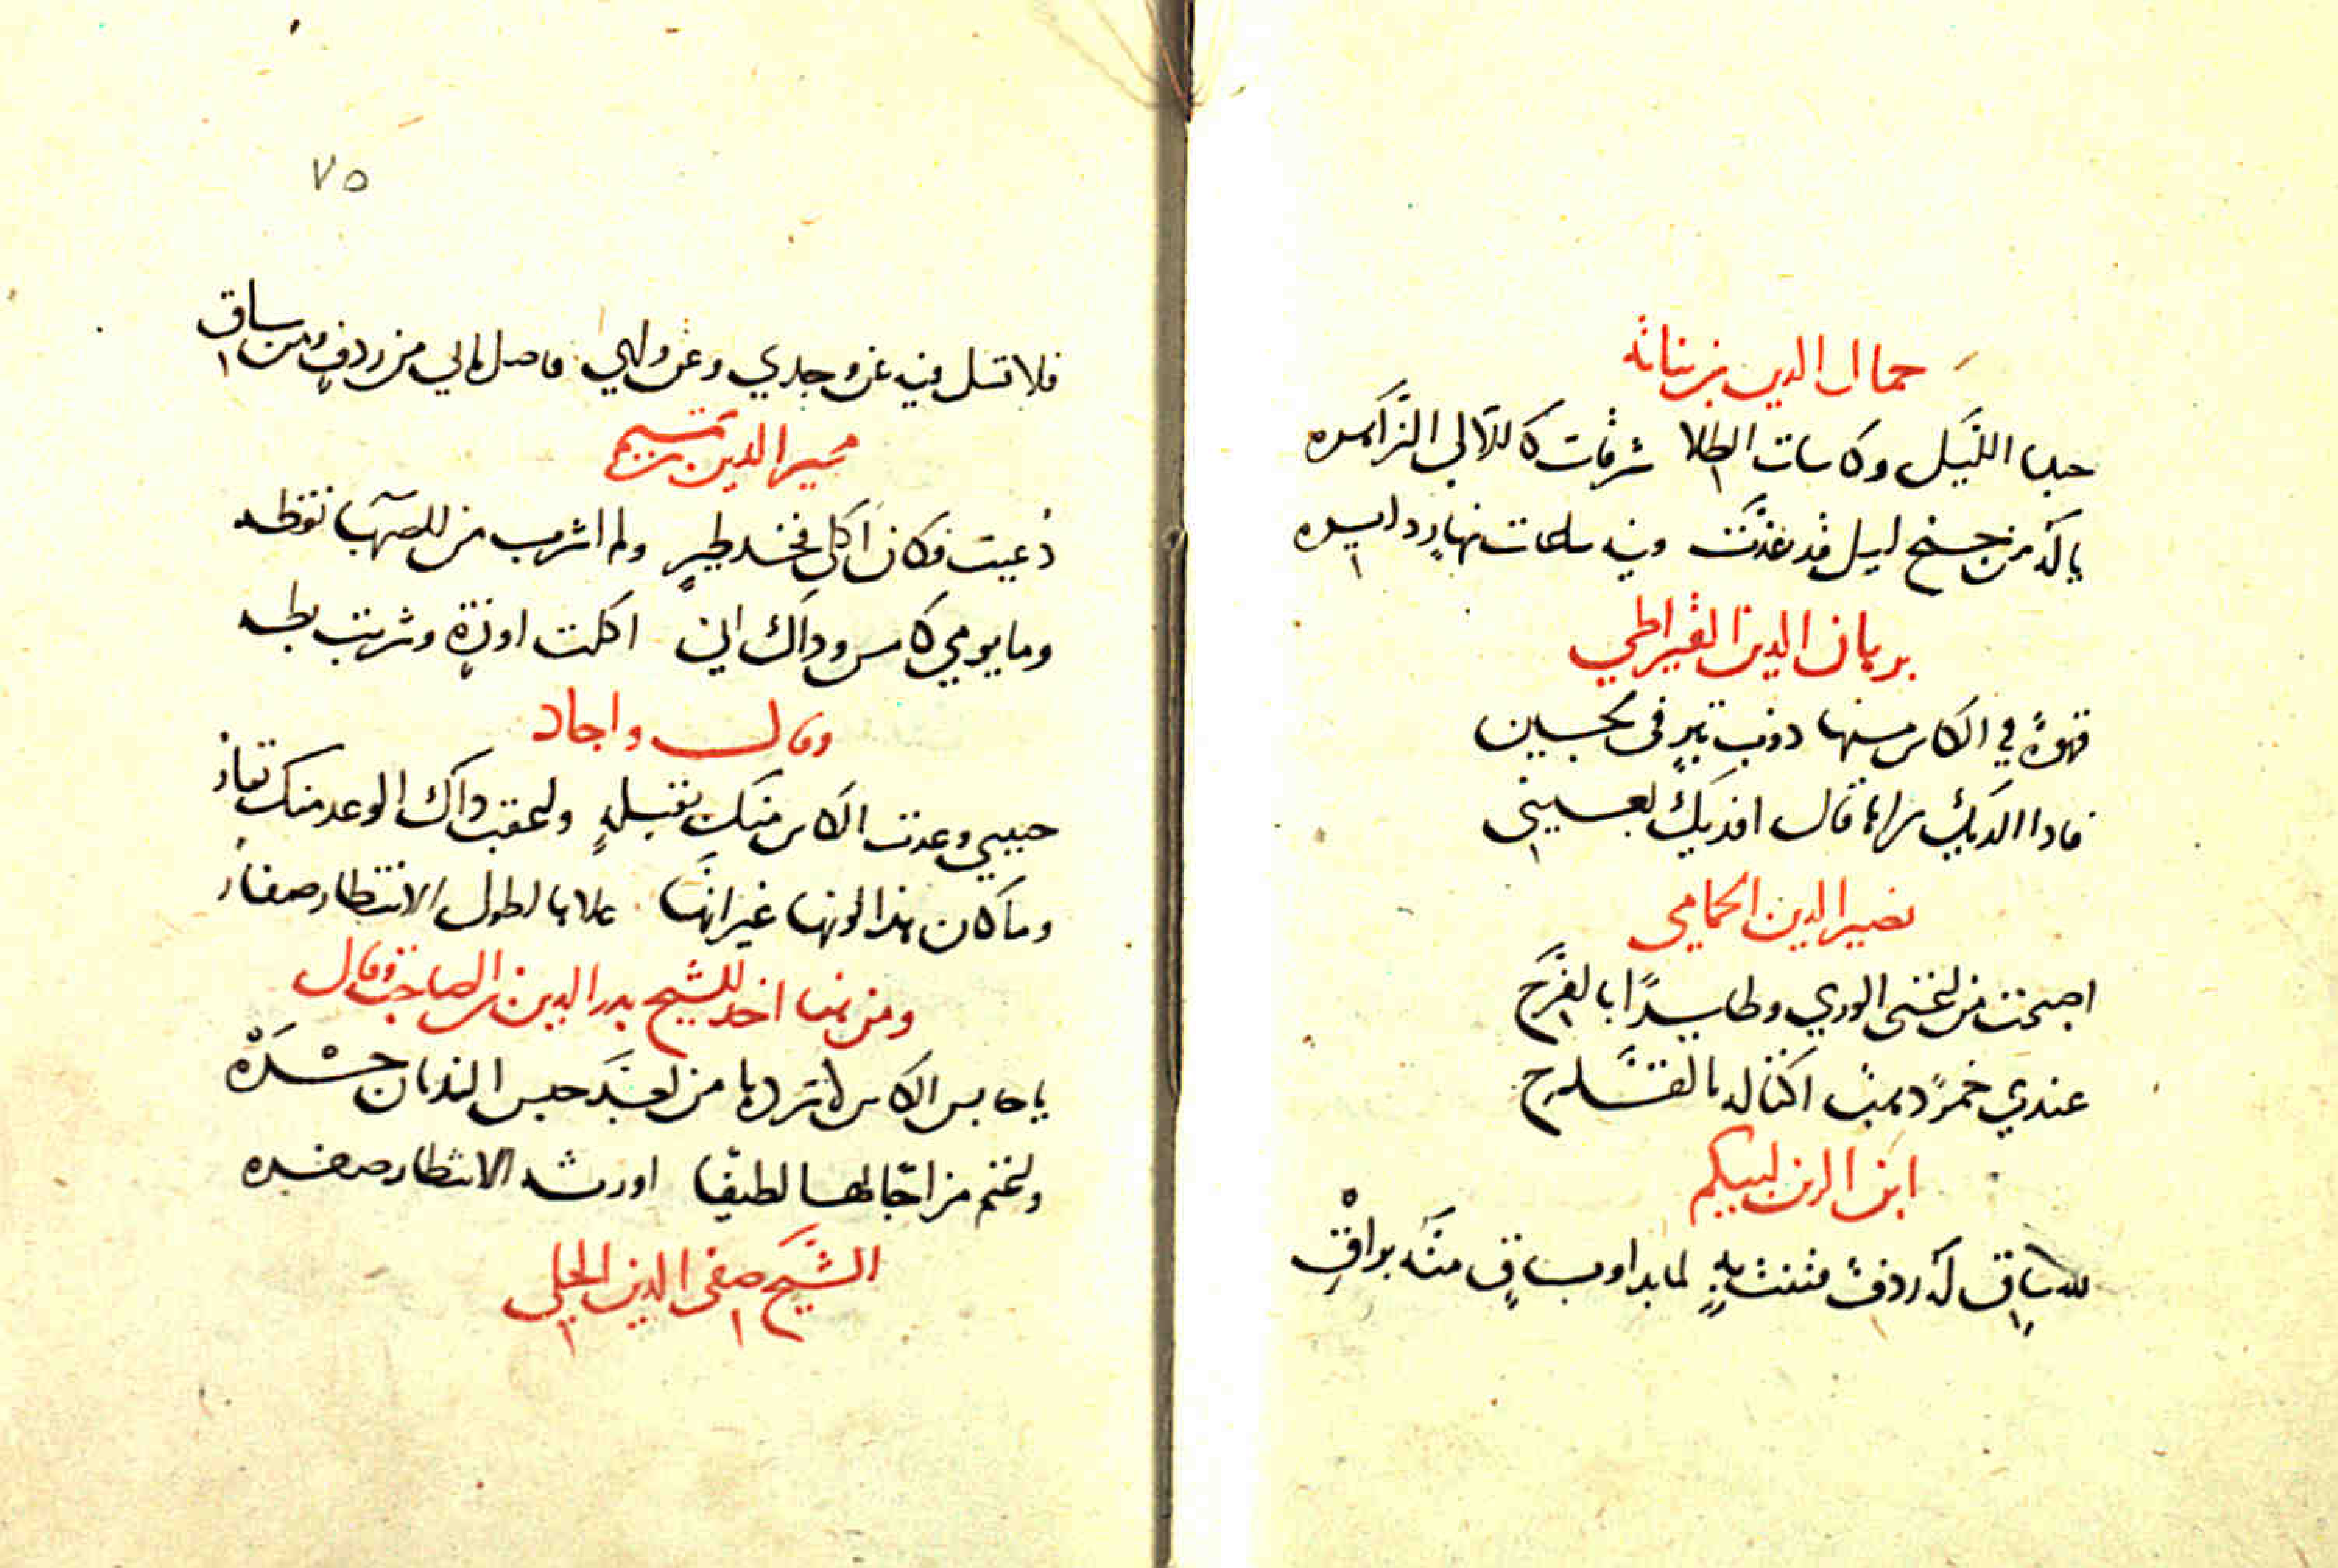 جمال الدين بن نباته
حبذا الليل وكاسات الطلا مشرقات كاللآلي الزاهره
ياله من جنح ليل قد غدت فيه ساعات نهار دايره
برهان الدين القيراطي
قهوةً في الكاس منها ذوب تبرٍ في لجين
فاذا الديك راها قال افديك بعيني
نصير الدين الحمامي
اصبحت من اغنى الوري وطايرًا بالفرح
عندي خمرٌ ذهبٌ اكتاله بالقدح
ابن الدين لبيكم
لله ساقٍ له ردفٌ فتنت به لما بدا وبساقٍ منه براقِ
٧٥
فلا تسل فيه عن وجدي وعن ولهي فاصل مابي من ردفٍ ومن ساق
مجير الدين بن تميم
دُعيت فكان اكلي فخذ طيرٍ ولم اشرب من الصهبا نقطه
وما يومي كامس وذاك اني اكلت اوزة وشربت بطه
وقال واجاد
حبيبي وعدت الكاس منك بقبلةٍ واعقب ذاك الوعد منك نفارُ
وما كان هذا لونها غير انها علاها لطول الانتظار صفارُ
ومن هنا اخذ الشيخ بدر الدين بن الصاحب فقال
يا حابس الكاس لا تزدها من بعد حبس الدنان حسره
واغنم مزاجًا لها لطيفًا اورثه الانتظار صفره
الشيخ صفي الدين الحلي